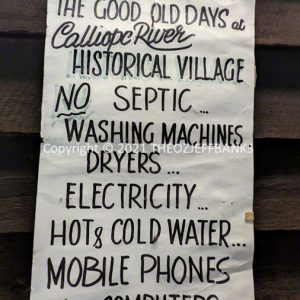 THE GOOD OLD DAYS at
Calliope River
HISTORICAL VILLAGE
NO SEPTIC...
WASHING MACHINES
Copyright © 2021 THEOZJEFFBANKS
DRYERS...
ELECTRICITY...
HOT & COLD WATER...
MOBILE PHONES
COMPUTERS